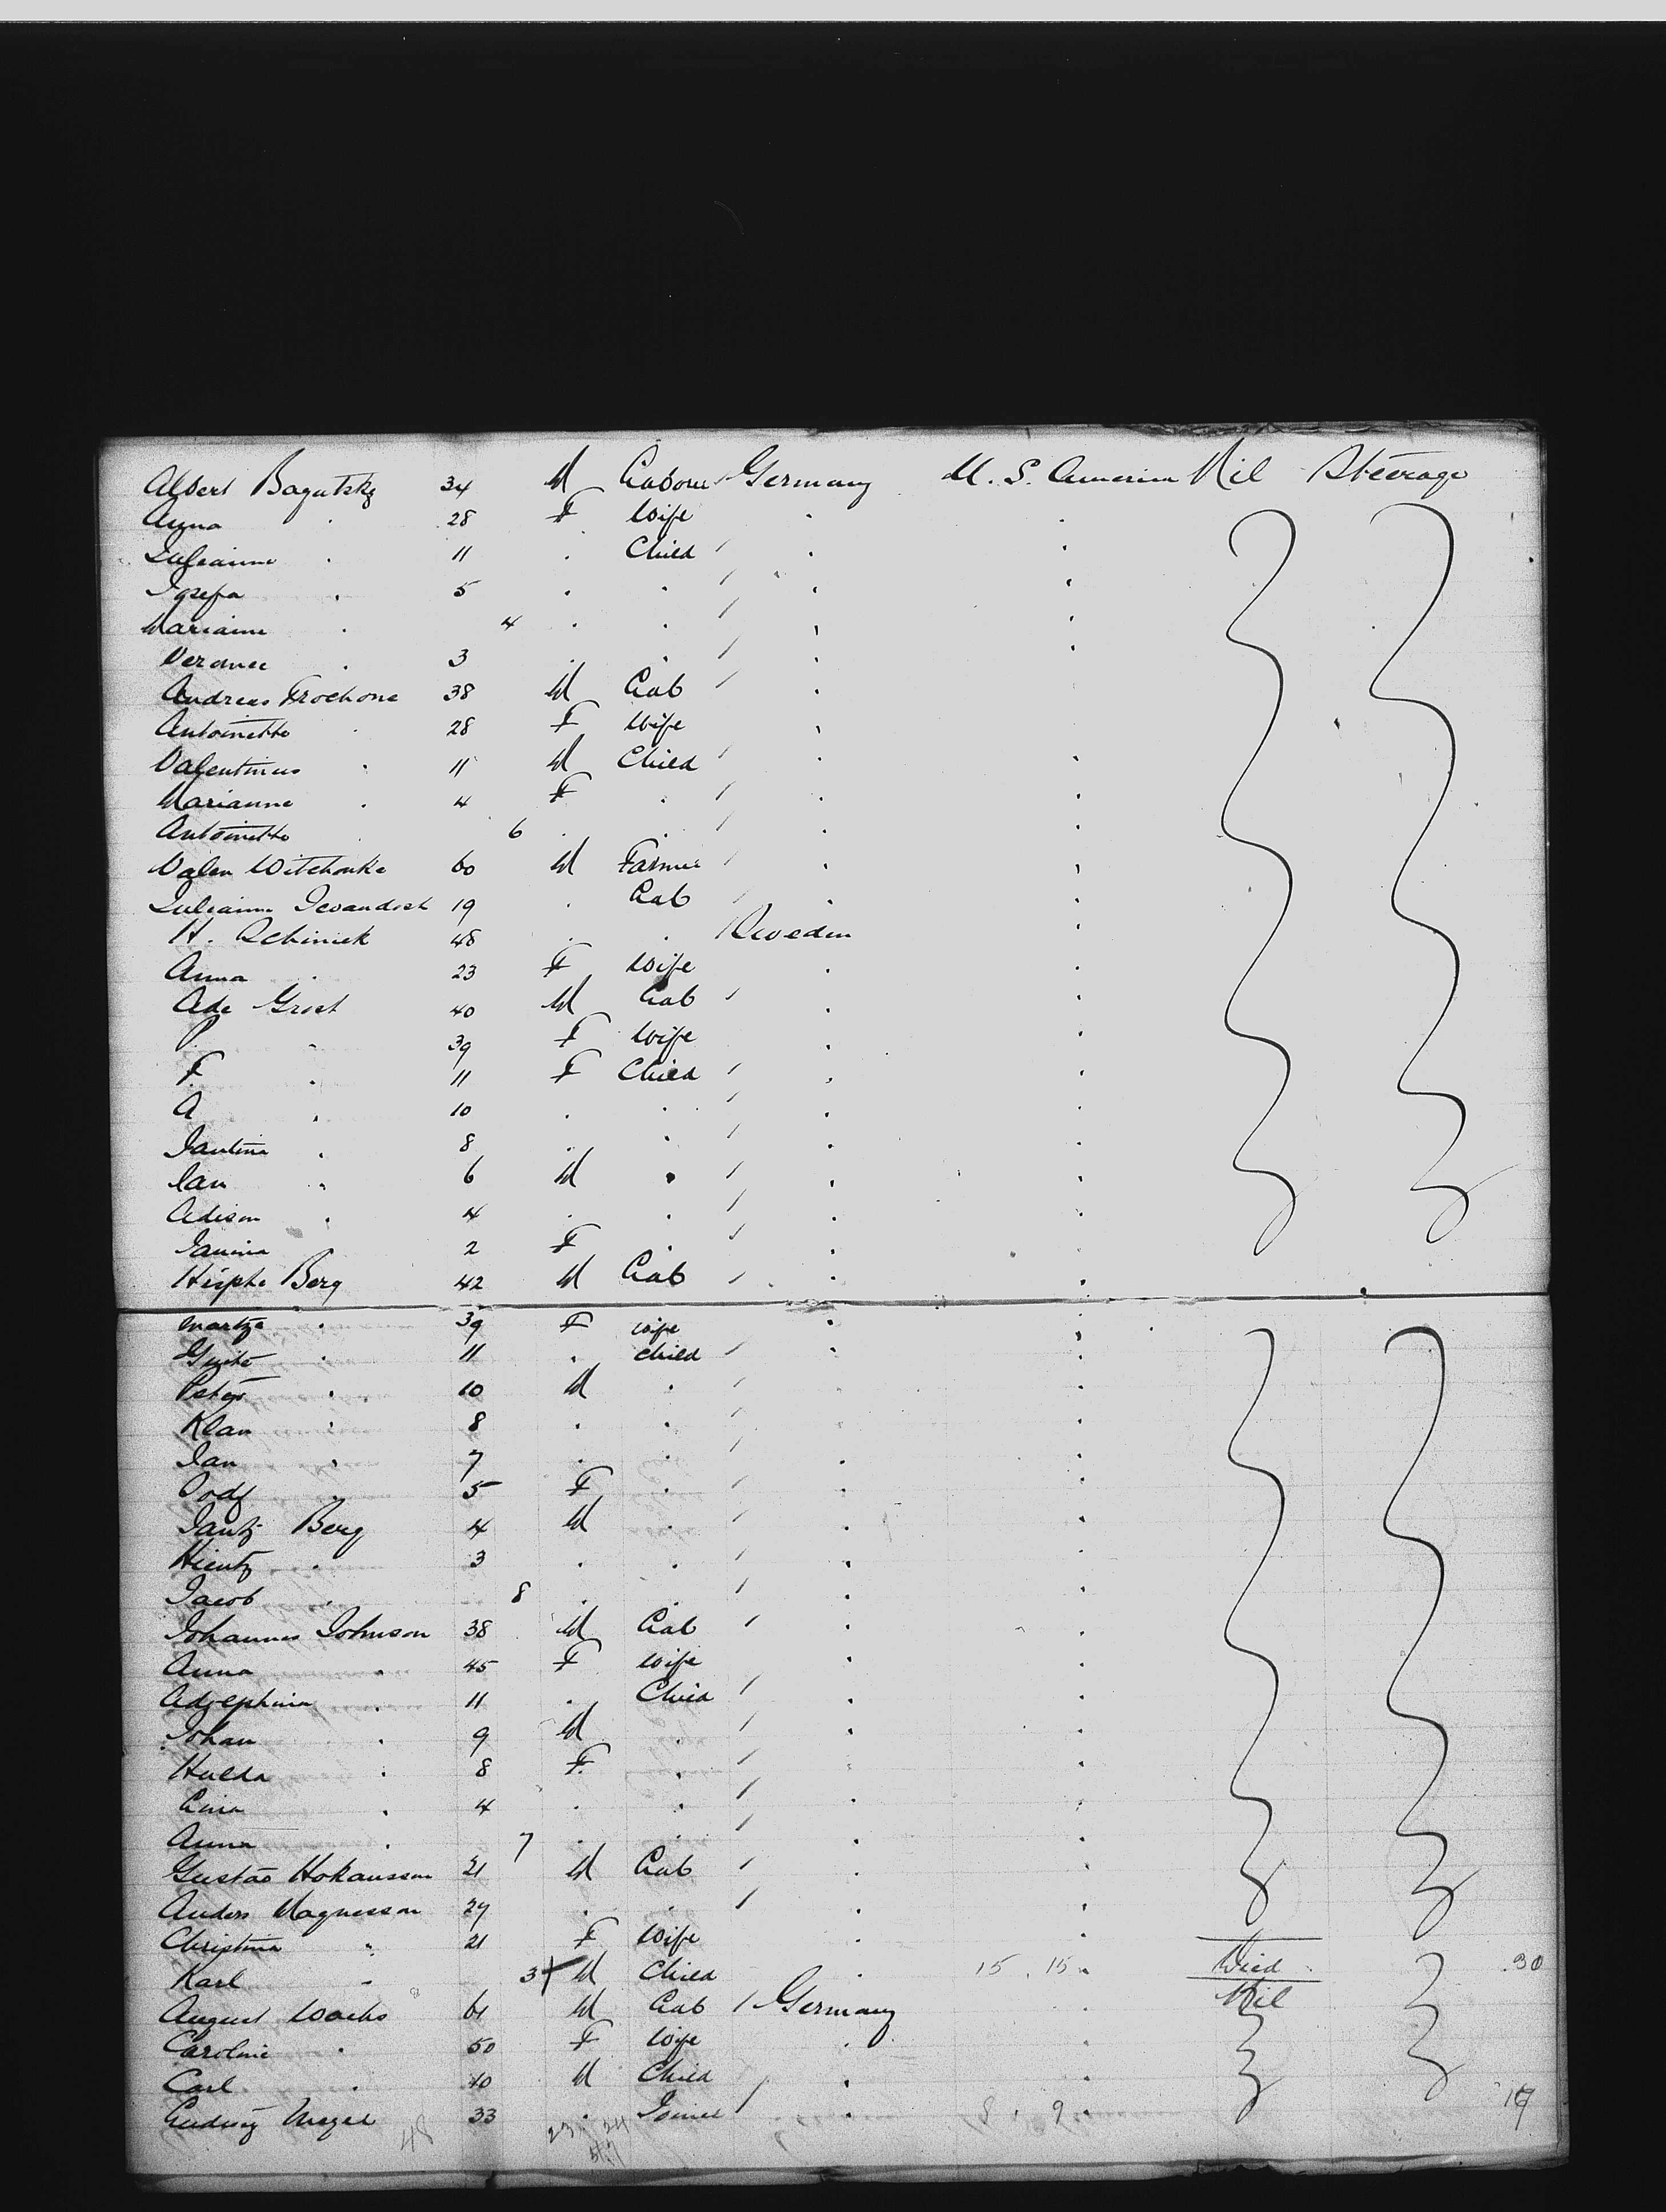 Albert Bagutzky 34 M Labour Germany U. S. America Nil Steerage
Anna " 28 F Wife " "
Julianne " 11 " Child / " "
Josepa " 5 " " / " "
Marianne " 4 " " / " "
Veronee " 3 " " / " "
Andreas Trochone 38 M Lab / "
Antoinette " 28 F Wife "
Valentinus " 11 M Child / " "
Marianne " 4 F " / " "
Antoinette " 6 " " / " "
Valen Witchonke 60 M Farmer / " "
Julianne 19 " Lab / " "
H. Schiniek 48 " " / Sweden "
Anna " 23 F Wife " "
Ade Grost 40 M Lab / " "
P. " 39 F Wife " "
F. " 11 F Child / " "
A " 10 " " / " "
Jantina " 8 " " / " "
Jan " 6 M " / " "
Adison " 4 " " / " "
Janina 2 F " / "
Berg 42 M Lab / " "
Martze " 39 F Wife " "
Guite " 11 " Child / " "
Peter " 10 M " / "
Klan " 8 " " / " "
Jan " 7 " " / " "
5 F " / " "
Jantz Berg 4 M " / " "
Hientz " 3 " " / " "
Jacob " 8 " " / " "
Johannes Johnson 38 M Lab / " "
Anna " 45 F Wife " "
Adjephina " 11 " Child / " "
Johan " 9 M " / " "
Hulda " 8 F. " / " "
Lina " 4 " " / " "
Anna " 7 " " / " "
Gustav Hokansson 21 M Lab / " "
Anders Magnesson 29 " " / " "
Christina " 21 F Wife " "
Karl " 3 + M Child " 15 . 15 " Died 30
August Wachs 61 M Lab / Germany " Nil
Caroline " 50 F Wife " "
Carl " 10 M Child / " "
Ludwig 33 " Joiner / " 8 . 9 " 17
48 23 . 24
47